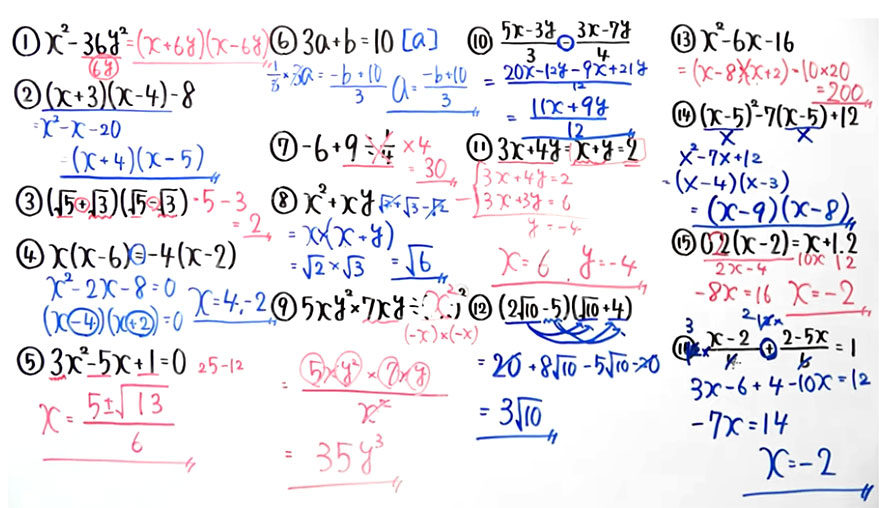 ① x² - 36y² = (x+6y)(x-6y)
6y
② (x+3)(x-4) - 8
= x² - x - 20
= (x+4)(x-5)
③ (√5+√3)(√5-√3) = 5-3
= 2
④ x(x-6) = -4(x-2)
x² - 2x - 8 = 0
(x-4)(x+2) = 0
x = 4, -2
⑤ 3x² - 5x + 1 = 0
25-12
x = (5±√13)/6
⑥ 3a+b = 10 [a]
1/3 × 3a = (-b+10)/3
a = (-b+10)/3
⑦ -6+9÷1/4
×4
= 30
⑧ x²+xy
= x×(x+y)
= √2×√3
= √6
⑨ 5xy²×7xy÷
(-x)×(-x)
= 5xy²×7xy/x²
= 35y³
⑩ (5x-3y)/3 - (3x-7y)/4
= (20x-12y-9x+21y)/12
= (11x+9y)/12
⑪ 3x+4y = x+y = 2
3x+4y = 2
3x+3y = 6
y = -4
x = 6, y = -4
⑫ (2√10-5)(√10+4)
= 20+8√10-5√10-20
= 3√10
⑬ x² - 6x - 16
= (x-8)(x+2)
-10×20
= 200
⑭ (x-5)² - 7(x-5) + 12
X X
X² - 7X + 12
= (X-4)(X-3)
= (x-9)(x-8)
⑮ 0.2(x-2) = x+1.2
2x-4 10x 12
-8x = 16
x = -2
(x-2)/4 + (2-5x)/6 = 1
3x-6+4-10x = 12
-7x = 14
x = -2